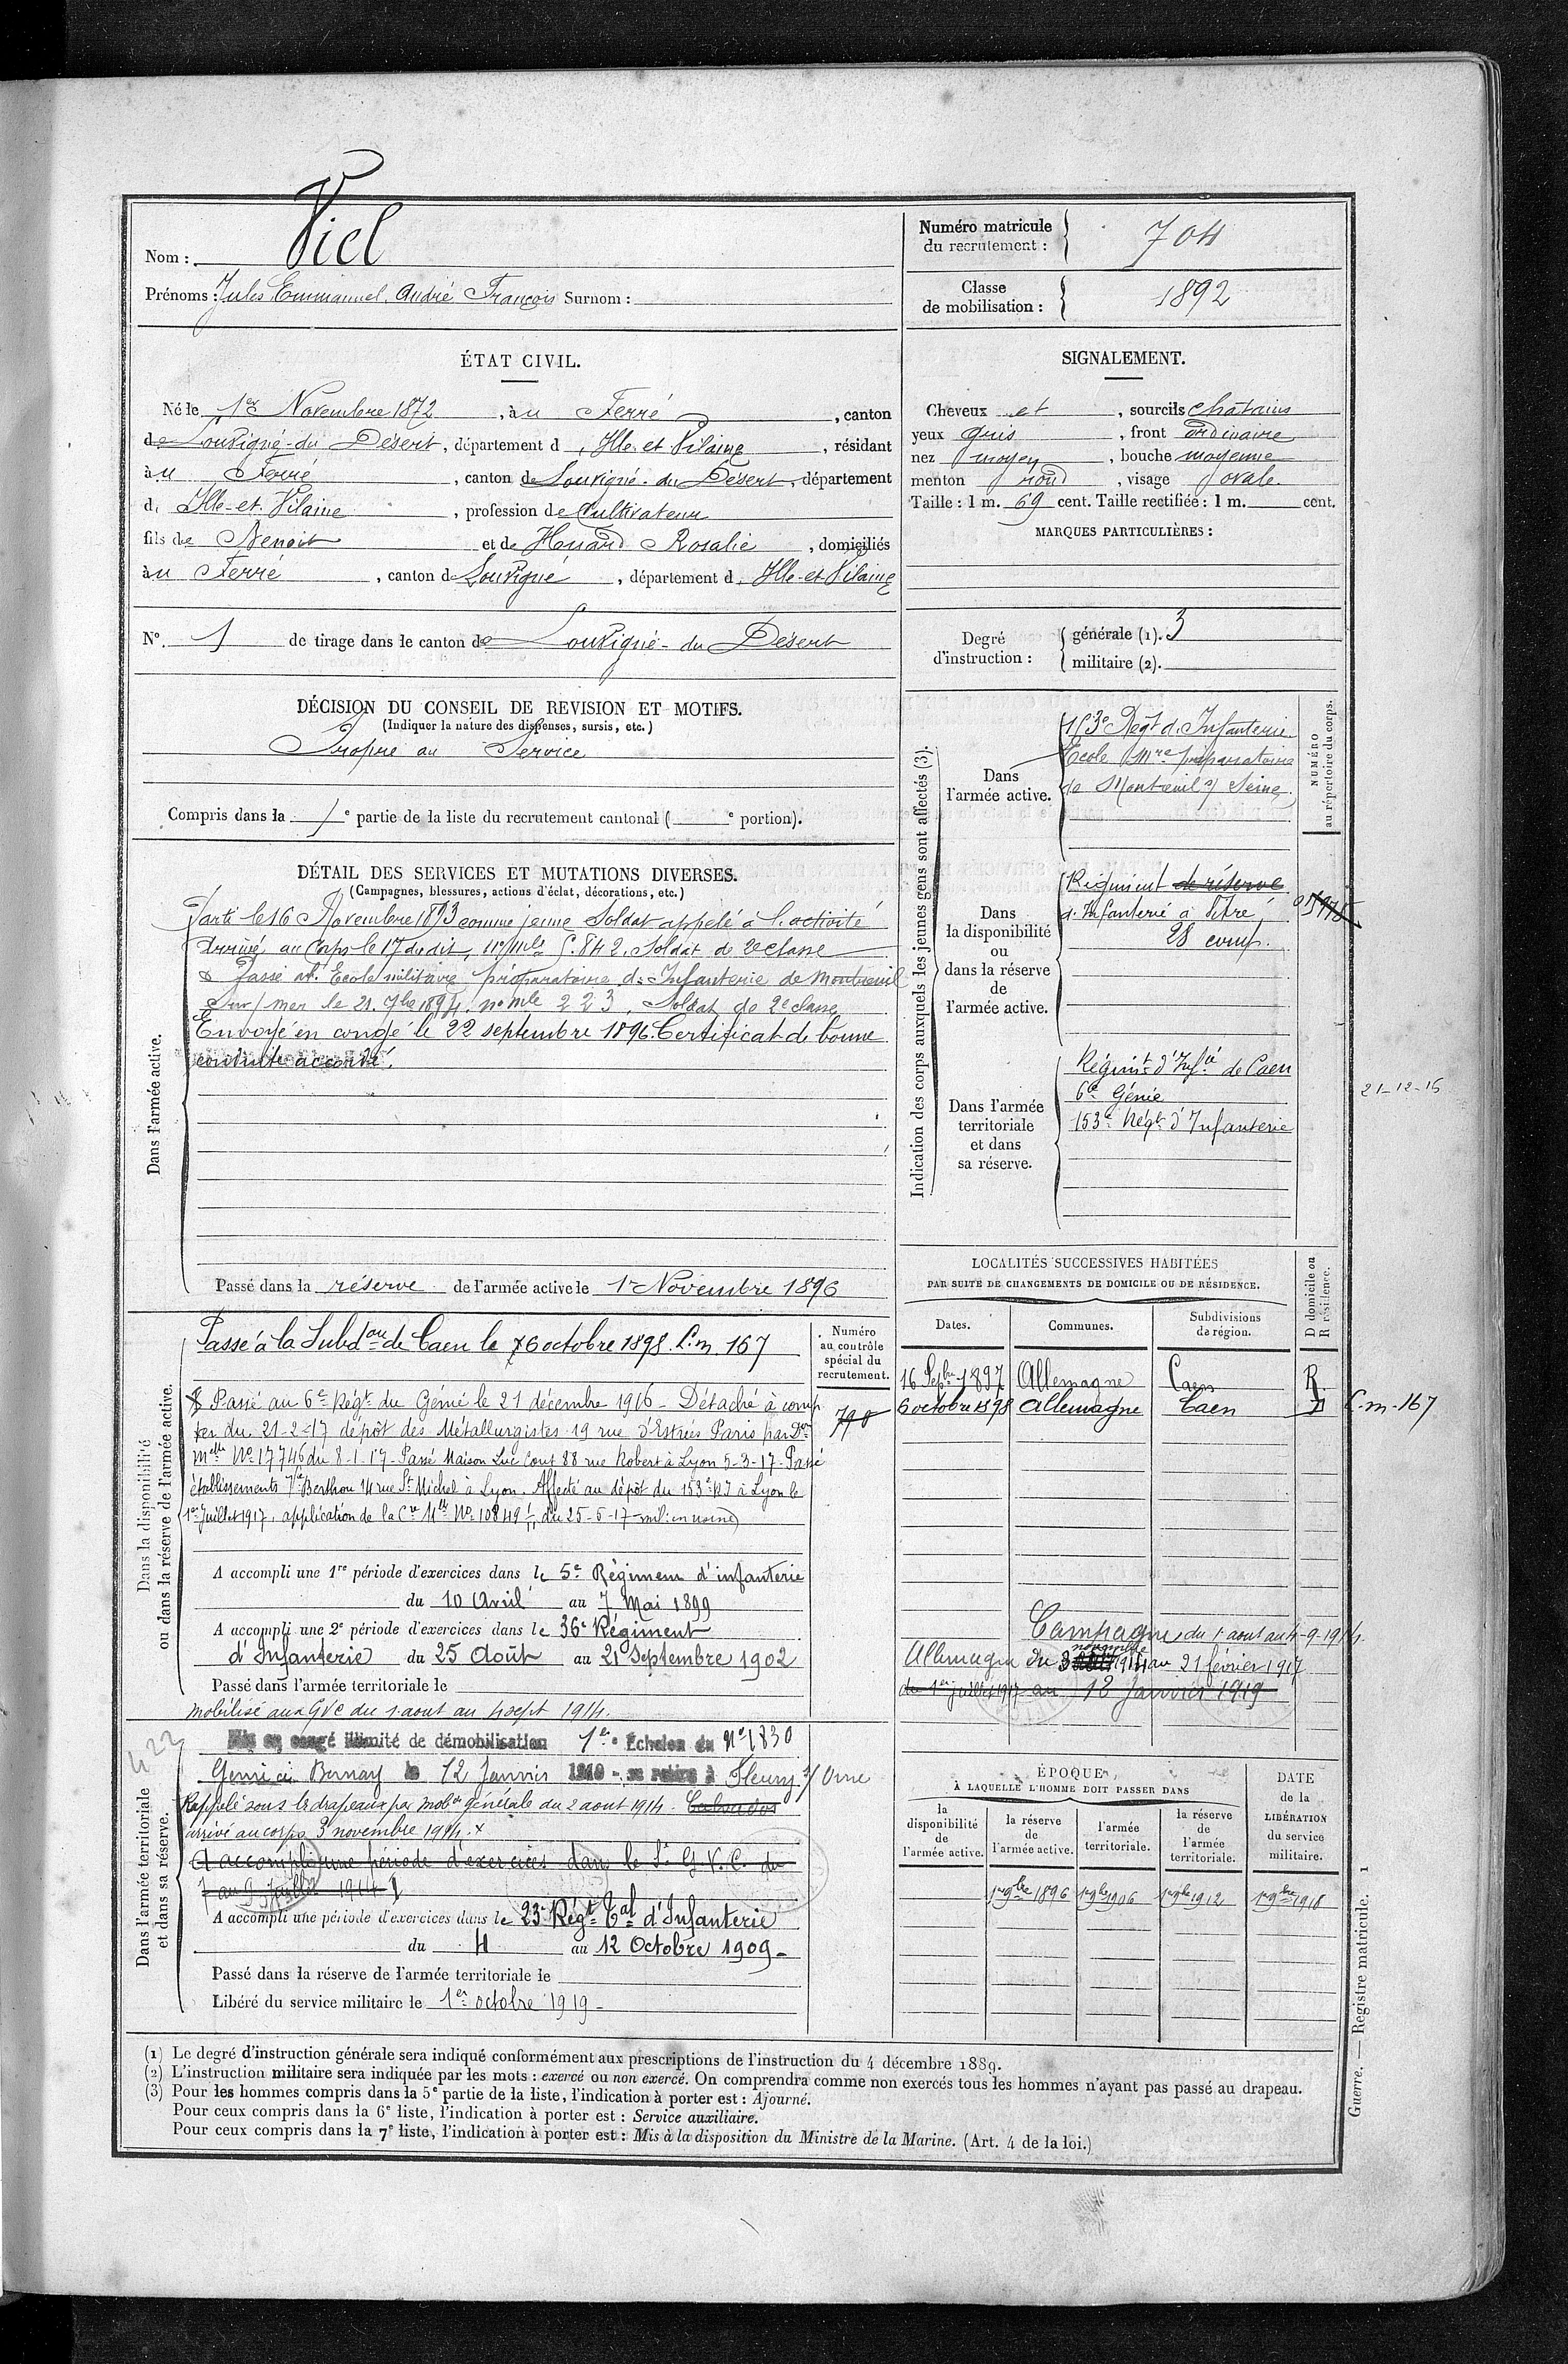 Nom : Viel
Prénoms : Jules Emmanuel André François Surnom :
Numéro matricule
du recrutement : 704
Classe
de mobilisation : 1892
ÉTAT CIVIL.
Né le 1er Novembre 1872, à u Ferré, canton
de Louvigné-du Désert, département d Ille et Vilaine, résidant
à u Ferré, canton de Louvigné-du Désert, département
d. Ille-et-Vilaine, profession de Cultivateur
fils de Benoit et de Houard Rosalie, domiciliés
à u Ferré, canton de Louvigné, département d. Ille-et-Vilaine
N°. 1 de tirage dans le canton de Louvigné-du Désert
SIGNALEMENT.
Cheveux et, sourcils châtains
yeux gris, front ordinaire
nez moyen, bouche moyenne
menton rond, visage ovale
Taille : 1 m. 69 cent. Taille rectifiée : 1 m. cent.
MARQUES PARTICULIÈRES :
Degré
d'instruction :
générale (1). 3
militaire (2).
DÉCISION DU CONSEIL DE REVISION ET MOTIFS.
(Indiquer la nature des dispenses, sursis, etc.)
Propre au Service
Compris dans la 1e partie de la liste du recrutement cantonal ( e portion).
DÉTAIL DES SERVICES ET MUTATIONS DIVERSES.
(Campagnes, blessures, actions d'éclat, décorations, etc.)
Dans l'armée active.
Parti le 16 Novembre 1893 comme jeune Soldat appelé à l'activité
Arrivé au Corps le 17 dudit, no mle 5.842. Soldat de 2e classe
Passé à l'École militaire préparatoire d'Infanterie de Montreuil
Sur/mer le 21. 7bre 1894. no mle 223, Soldat de 2e classe
Envoyé en congé le 22 septembre 1896. Certificat de bonne
conduite accordé.
Passé dans la réserve de l'armée active le 1er Novembre 1896
Indication des corps auxquels les jeunes gens sont affectés (3).
NUMÉRO
au répertoire du corps.
Dans
l'armée active.
153e Regt d'Infanterie
Ecole Mre préparatoire
de Montreuil s/ Seine
Dans
la disponibilité
ou
dans la réserve
de
l'armée active.
Régiment de réserve
d'Infanterie à Vitré,
28 comp.
Dans l'armée
territoriale
et dans
sa réserve.
Régimt d'Infie de Caen
6e Génie
153e Régt d'Infanterie
21-12-16
LOCALITÉS SUCCESSIVES HABITÉES
PAR SUITE DE CHANGEMENTS DE DOMICILE OU DE RÉSIDENCE.
Dates.
Communes.
Subdivisions
de région.
D domicile ou
R résidence.
16 Sepbre 1897 Allemagne Caen R
6 octobre 1898 Allemagne Caen D C.m.167
Dans la disponibilité
ou dans la réserve de l'armée active.
Numéro
au contrôle
spécial du
recrutement.
798
Passé à la Subdon de Caen le 6 octobre 1898. C.m. 167
Passé au 6e Régt du Génie le 21 décembre 1916 - Détaché à comp
ter du 21-2-17 dépôt des Métallurgistes 19 rue d'Estrées Paris par Don
melle No 17746 du 8-1-17. Passé Maison Luc Court 88 rue Robert à Lyon 5-3-17. Passé
établissements Berthou 14 rue St Michel à Lyon. Affecté au dépôt du 153e RI à Lyon le
1er Juillet 1917, application de la Cre Mlle No 10849 du 25-6-17
A accompli une 1re période d'exercices dans le 5e Régiment d'infanterie
du 10 Avril au 7 Mai 1899
A accompli une 2e période d'exercices dans le 36e Régiment
d'Infanterie du 25 Août au 21 Septembre 1902
Passé dans l'armée territoriale le
mobilisé aux GVC du 1 aout au 4 sept 1914.
Campagne du 1 aout au 4-9-1914.
Allemagne du 3 novembre 1914 au 21 février 1917
du 1er juillet 1917 au 12 Janvier 1919
Dans l'armée territoriale
et dans sa réserve.
422
Mis en congé illimité de démobilisation 1er Echelon du No 1830
Génie à Bernay le 12 Janvier 1919 - se retire à Fleury s/ Orne
Rappelé sous les drapeaux par mobon générale du 2 aout 1914. Calvados
arrivé au corps 3 novembre 1914. x
A accompli une période d'exercices dans le Se G.V.C. du
7 au 9 Juillet 1914
A accompli une période d'exercices dans le 23e Régt Tal d'Infanterie
du 4 au 12 Octobre 1909 -
Passé dans la réserve de l'armée territoriale le
Libéré du service militaire le 1er octobre 1919 -
ÉPOQUE
À LAQUELLE L'HOMME DOIT PASSER DANS
la
disponibilité
de
l'armée active.
la réserve
de
l'armée active.
l'armée
territoriale.
la réserve
de
l'armée
territoriale.
DATE
de la
LIBÉRATION
du service
militaire.
1er 9bre 1896 1er 9bre 1906 1er 9bre 1912 1er 9bre 1918
(1) Le degré d'instruction générale sera indiqué conformément aux prescriptions de l'instruction du 4 décembre 1889.
(2) L'instruction militaire sera indiquée par les mots : exercé ou non exercé. On comprendra comme non exercés tous les hommes n'ayant pas passé au drapeau.
(3) Pour les hommes compris dans la 5e partie de la liste, l'indication à porter est : Ajourné.
Pour ceux compris dans la 6e liste, l'indication à porter est : Service auxiliaire.
Pour ceux compris dans la 7e liste, l'indication à porter est : Mis à la disposition du Ministre de la Marine. (Art. 4 de la loi.)
Guerre. — Registre matricule. 1